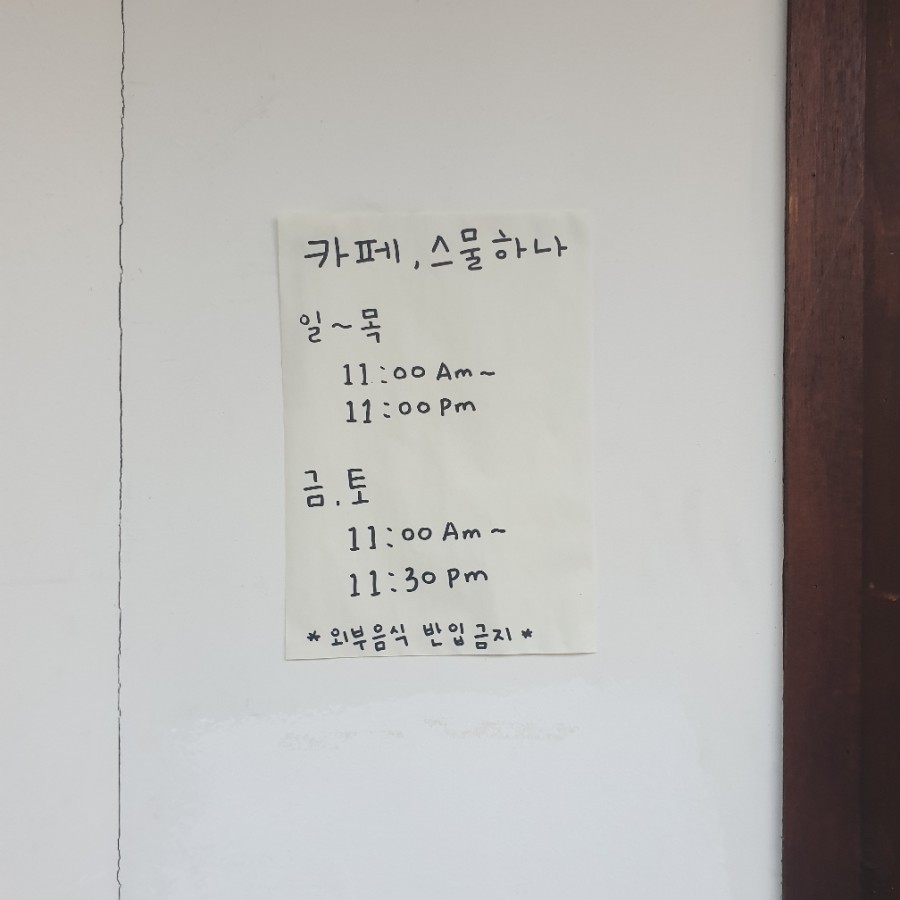 카페, 스물하나
일~목
11:00 Am~
11:00 Pm
금.토
11:00 Am~
11:30 Pm
* 외부음식 반입금지 *